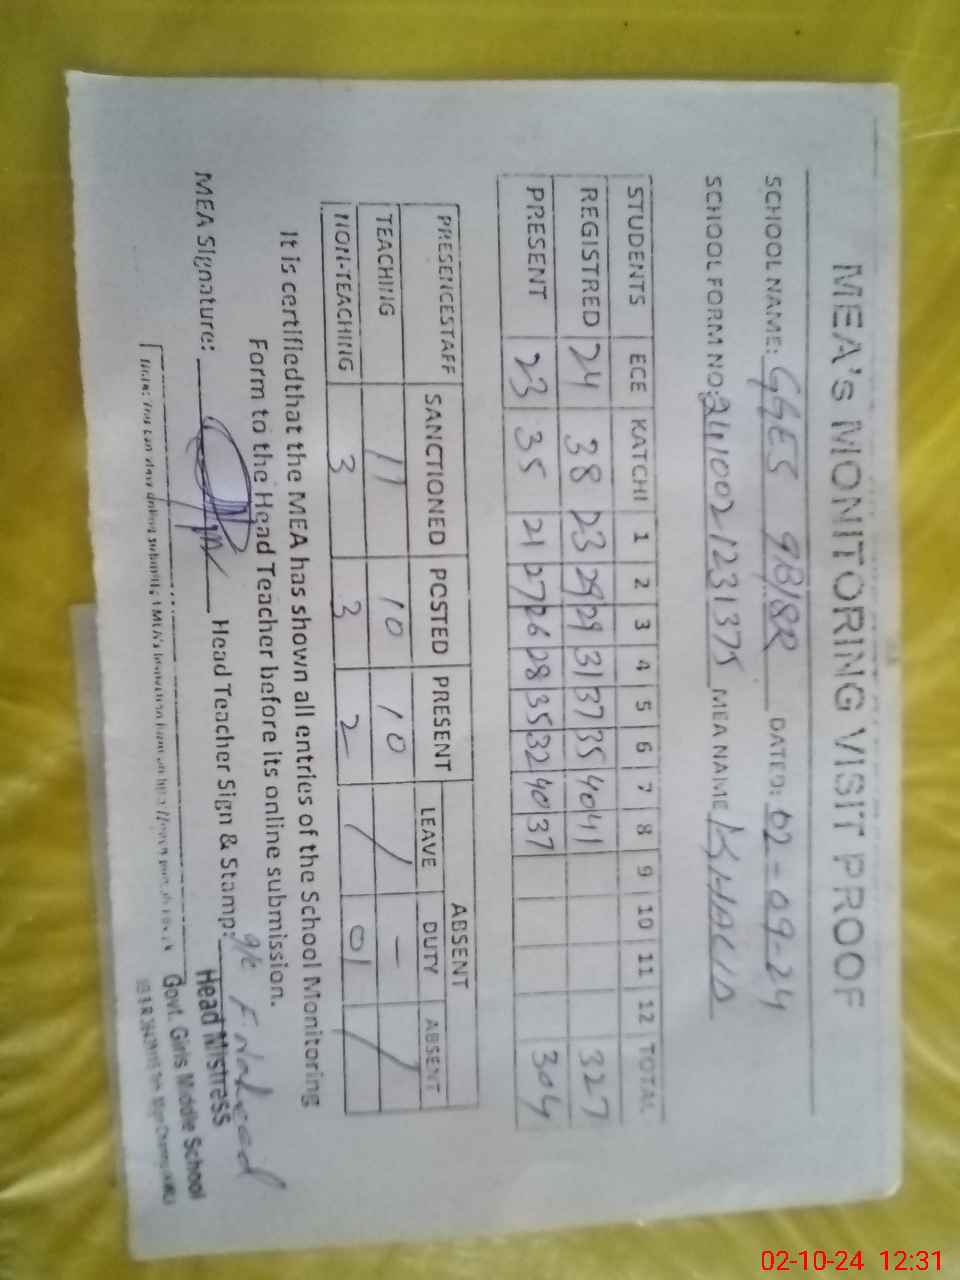 MEA's MONITORING VISIT PROOF
SCHOOL NAME: GGES 98/8R DATED: 02-09-24
SCHOOL FORM NO: 24110021231375 MEA NAME KHALID
STUDENTS ECE KATCHI 1 2 3 4 5 6 7 8 9 10 11 12 TOTAL
REGISTRED 24 38 23 29 29 31 37 35 40 41 327
PRESENT 23 35 21 27 26 28 35 32 40 37 304
PRESENCESTAFF SANCTIONED POSTED PRESENT ABSENT
LEAVE DUTY ABSENT
TEACHING 11 10 10 / - /
NON-TEACHING 3 3 2 / 01 /
It is certifiedthat the MEA has shown all entries of the School Monitoring
Form to the Head Teacher before its online submission.
MEA Signature: Head Teacher Sign & Stamp:
Head Mistress
Govt. Girls Middle School
02-10-24 12:31